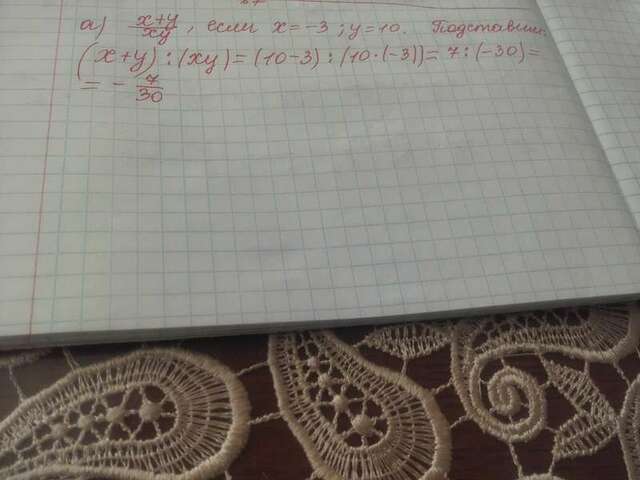 а) x+y/xy, если x=-3; y=10. Подставим:
(x+y):(xy)=(10-3):(10·(-3))=7:(-30)=
=-7/30